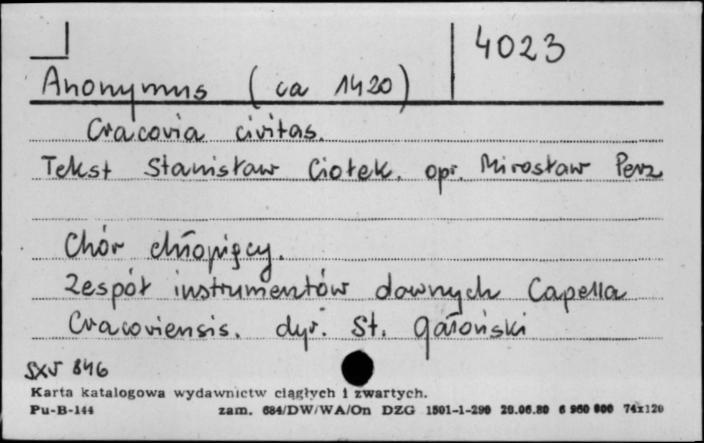 4023
Anonymus (ca 1420)
Cracovia civitas.
Tekst Stanisław Ciołek. opr. Mirosław Perz
Chór chłopięcy.
Zespół instrumentów dawnych Capella
Cracoviensis. dyr. St. Gałoński
SXV 846
Karta katalogowa wydawnictw ciągłych i zwartych.
Pu-B-144 zam. 684/DW/WA/On DZG 1501-1-290 20.06.80 6 950 000 74x120